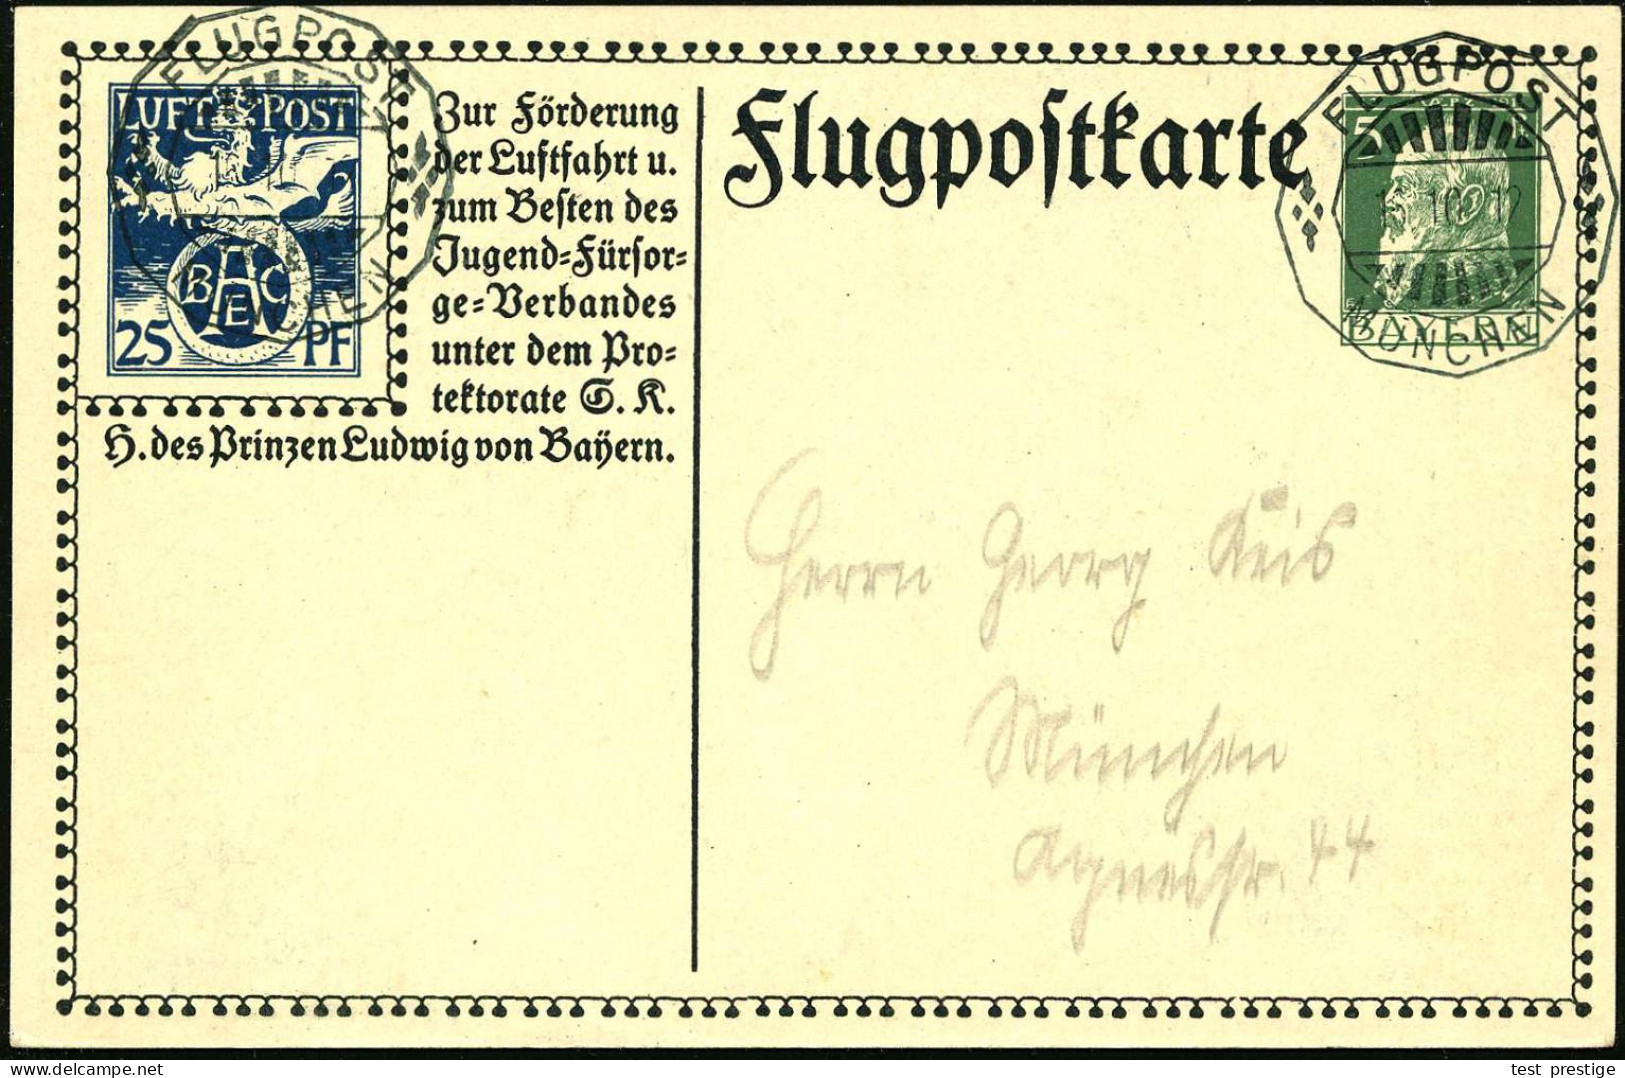 FLUGPOST
MÜNCHEN
LUFT POST
BAEC
25 PF
Zur Förderung
der Luftfahrt u.
zum Besten des
Jugend=Fürsor=
ge=Verbandes
unter dem Pro=
tektorate S. K.
H. des Prinzen Ludwig von Bayern.
Flugpostkarte
FLUGPOST
5
10 12
MÜNCHEN
BAYERN
Herrn Georg Keis
München
Agnesstr. 44
test_prestige